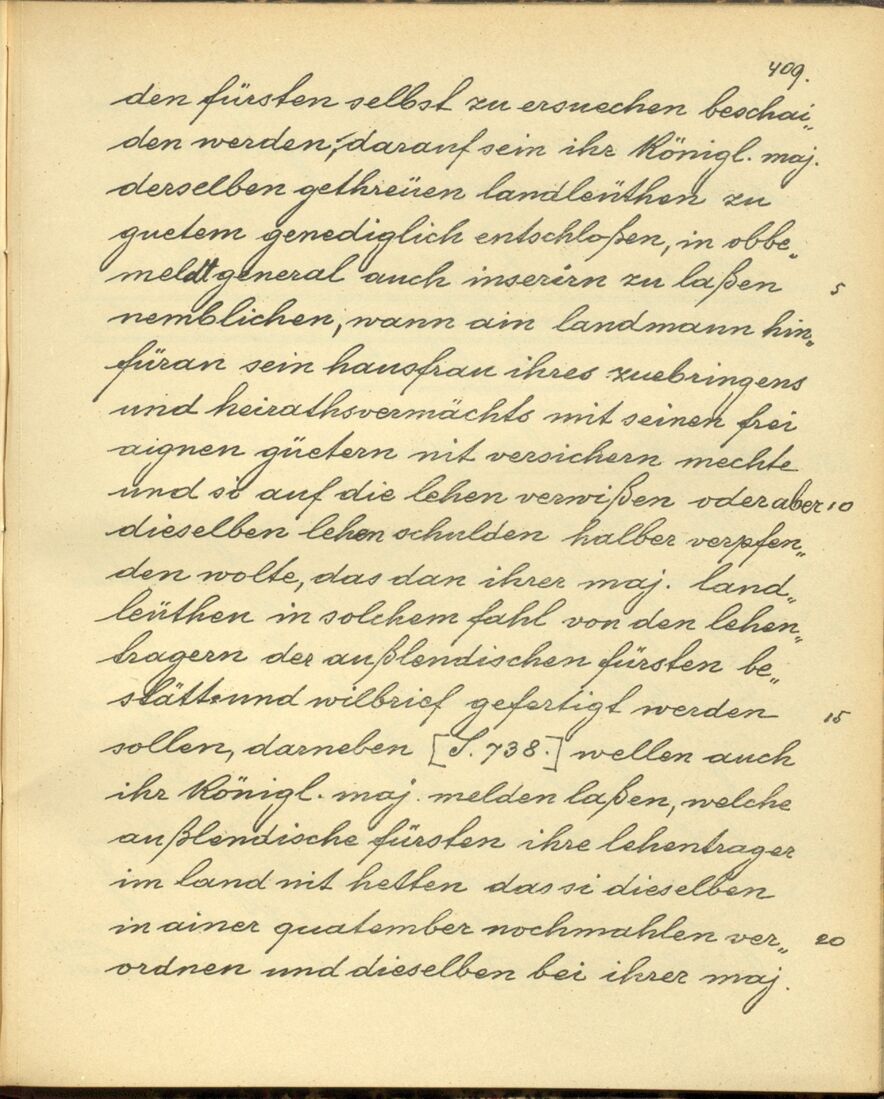 409.
den fürsten selbst zu ersuechen beschai„
den werden, darauf sein ihr Königl. maj.
derselben gethreüen landleüthen zu
guetem genediglich entschloßen, in obbe„
meldt general auch inserirn zu laßen 5
nemblichen, wann ain landmann hin„
füran sein hausfrau ihres zuebringens
und heirathsvermächts mit seinen frei
aignen güetern nit versichern mechte
und si auf die lehen verwißen oder aber 10
dieselben lehen schulden halber verpfen„
den wolte, das dan ihrer maj. land„
leüthen in solchem fahl von den lehen„
tragern der außlendischen fürsten be„
stätt und wilbrief gefertigt werden 15
sollen, darneben [S. 738.] wellen auch
ihr Königl. maj. melden laßen, welche
außlendische fürsten ihre lehentrager
im land nit hetten das si dieselben
in ainer quatember nochmahlen ver„ 20
ordnen und dieselben bei ihrer maj.